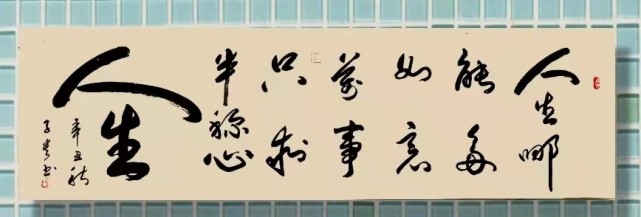 人生哪
能多
如意
萬事
只求
半称心
人生
辛丑秋
子书